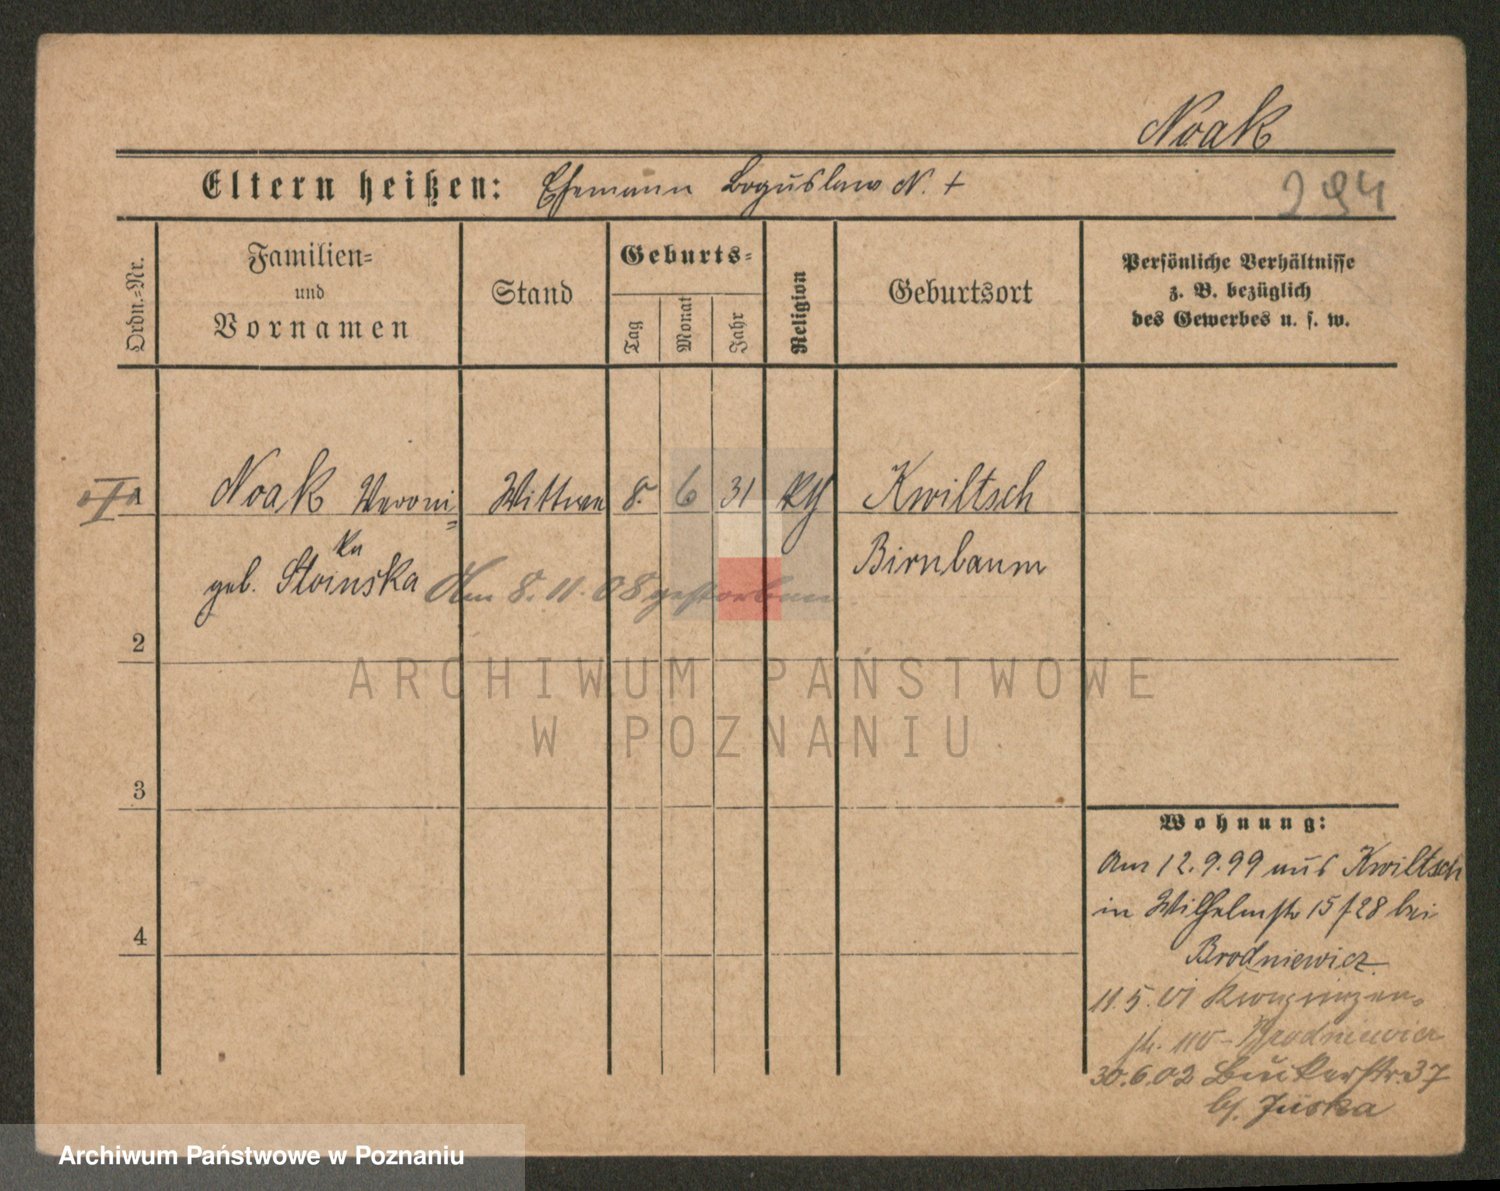 Noak
Eltern heißen: Ehemann Boguslaw N. +
294
Ordn.-Nr.
Familien-
und
Vornamen
Stand
Geburts-
Tag
Monat
Jahr
Religion
Geburtsort
Persönliche Verhältnisse
z. B. bezüglich
des Gewerbes u. s. w.
1 Noak Veroni- Wittwe 8. 6 31 Kwiltsch
ka
geb. Stoinska
Birnbaum
Am 8.11.08 gestorben
2
3
4
ARCHIWUM PAŃSTWOWE
W POZNANIU
Wohnung:
Am 12.9.99 aus Kwiltsch
in Wilhelmstr 15 f 28 bei
Brodniewicz
11.5.01
Brodniewicz
30.6.02 Bukerstr. 37
b/. Juska
Archiwum Państwowe w Poznaniu